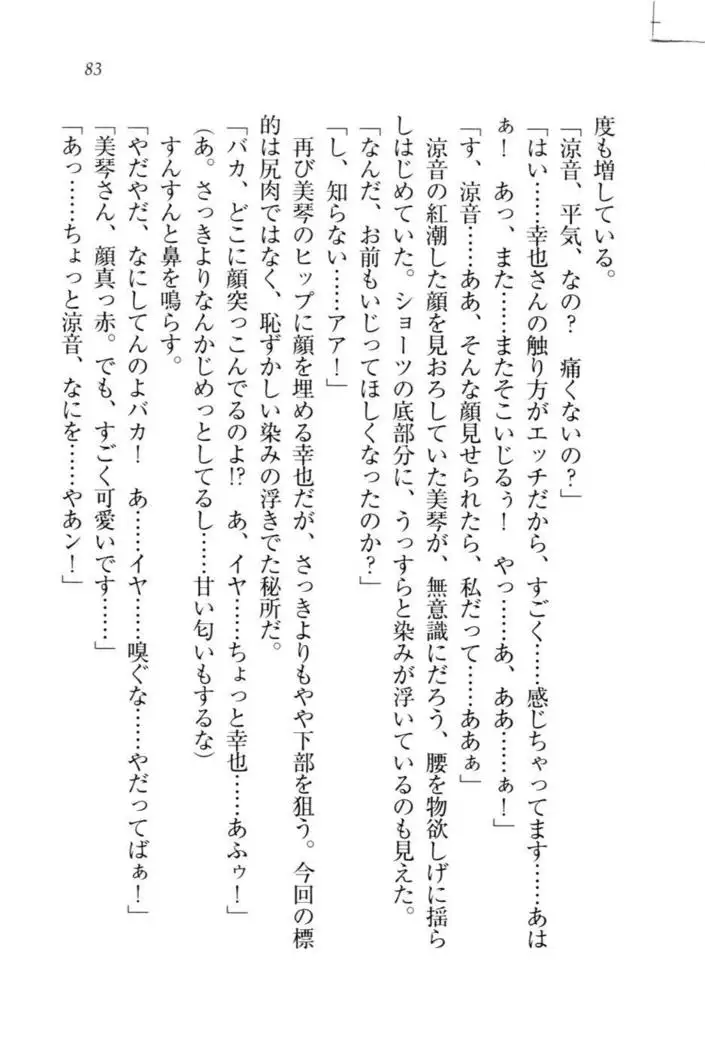 83
度も増している。
「涼音、平気、なの？　痛くないの？」
「はい……幸也さんの触り方がエッチだから、すごく……感じちゃってます……あは
ぁ！　あっ、また……またそこいじるぅ！　やっ……あ、ああ……ぁ！」
「す、涼音……ああ、そんな顔見せられたら、私だって……ああぁ」
涼音の紅潮した顔を見おろしていた美琴が、無意識にだろう、腰を物欲しげに揺ら
しはじめていた。ショーツの底部分に、うっすらと染みが浮いているのも見えた。
「なんだ、お前もいじってほしくなったのか？」
「し、知らない……アア！」
再び美琴のヒップに顔を埋める幸也だが、さっきよりもやや下部を狙う。今回の標
的は尻肉ではなく、恥ずかしい染みの浮きでた秘所だ。
「バカ、どこに顔突っこんでるのよ!?　あ、イヤ……ちょっと幸也……あふゥ！」
（あ。さっきよりなんかじめっとしてるし……甘い匂いもするな）
すんすんと鼻を鳴らす。
「やだやだ、なにしてんのよバカ！　あ……イヤ……嗅ぐな……やだってばぁ！」
「美琴さん、顔真っ赤。でも、すごく可愛いです……」
「あっ……ちょっと涼音、なにを……やあン！」